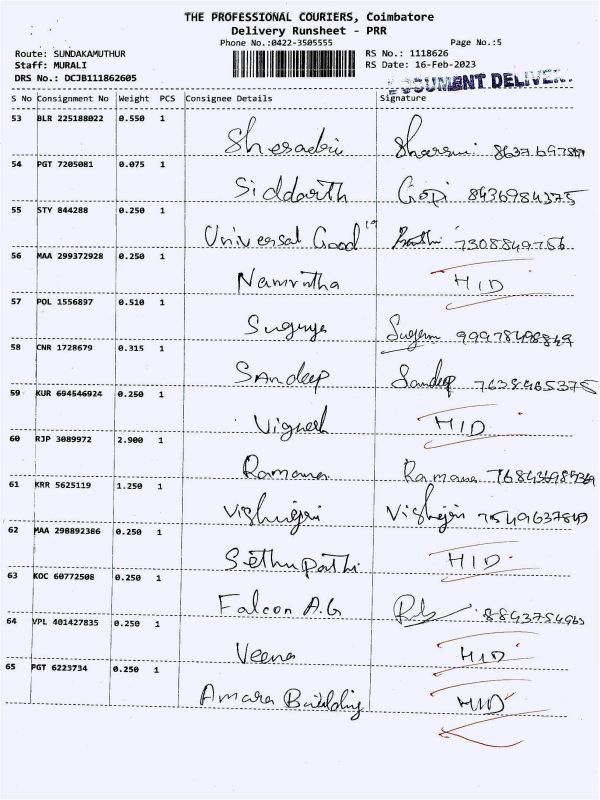 THE PROFESSIONAL COURIERS, Coimbatore
Delivery Runsheet - PRR
Phone No.:0422-3505555 Page No.:5
Route: SUNDAKAMUTHUR RS No.: 1118626
Staff: MURALI RS Date: 16-Feb-2023
DRS No.: DCJB111862605 DOCUMENT DELIVER
S No Consignment No Weight PCS Consignee Details Signature
53 BLR 225188022 0.550 1
Sheradri 8637697
54 PGT 7205081 0.075 1
Siddarth Gopi 8436984375
55 STY 844288 0.250 1
Universal Good 7308849756
56 MAA 299372928 0.250 1
Namrutha HID
57 POL 1556897 0.510 1
Suguya
58 CNR 1728679 0.315 1
Sandeep Sandeep 7638465375
59 KUR 694546924 0.250 1
Vignesh HID
60 RJP 3089972 2.900 1
Ramana Ramana
61 KRR 5625119 1.250 1
62 MAA 298892386 0.250 1
Sethupathi HID
63 KOC 60772508 0.250 1
Falcon A.G
64 VPL 401427835 0.250 1
Veena HID
65 PGT 6223734 0.250 1
Amara Building HID